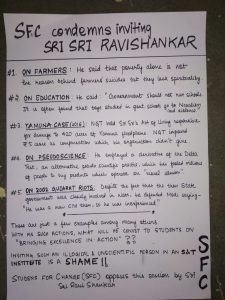 SFC condemns inviting
SRI SRI RAVISHANKAR
#1 ON FARMERS: He said that poverty alone is not
the reason behind farmers suicides but they lack spirituality.
#2. ON EDUCATION: He said: "Government should not run schools
It is often found that boys studied in govt schools go to Naxalism
and violence"
#3. YAMUNA CASE(2016): NGT held Sri Sri's Art of living responsible
for damage to 420 acres of Yamuna floodplains. NGT imposed
₹5 crore as compensation which his organisation didn't give
#4. ON PSEUDOSCIENCE: He employed a derivative of the
Test, an alternative pseudo scientific practice which has fooled millions
of people to buy products which operate on
#5 ON 2002 GUJARAT RIOTS: Despite the fact that the then State
government was clearly involved in riots, he defended Modi saying -
"He was a new CM then, so he was inexperienced"
These are just a few examples among many others
WITH AS SUCH ACTIONS, WHAT WILL HE CONVEY TO STUDENTS ON
"BRINGING EXCELLENCE IN ACTION" ??
INVITING SUCH AN ILLOGICAL & UNSCIENTIFIC PERSON IN AN S&T
INSTITUTE IS A SHAME!!
STUDENTS FOR CHANGE (SFC) opposes this session by Sri
Sri Ravi Shankar
SFC